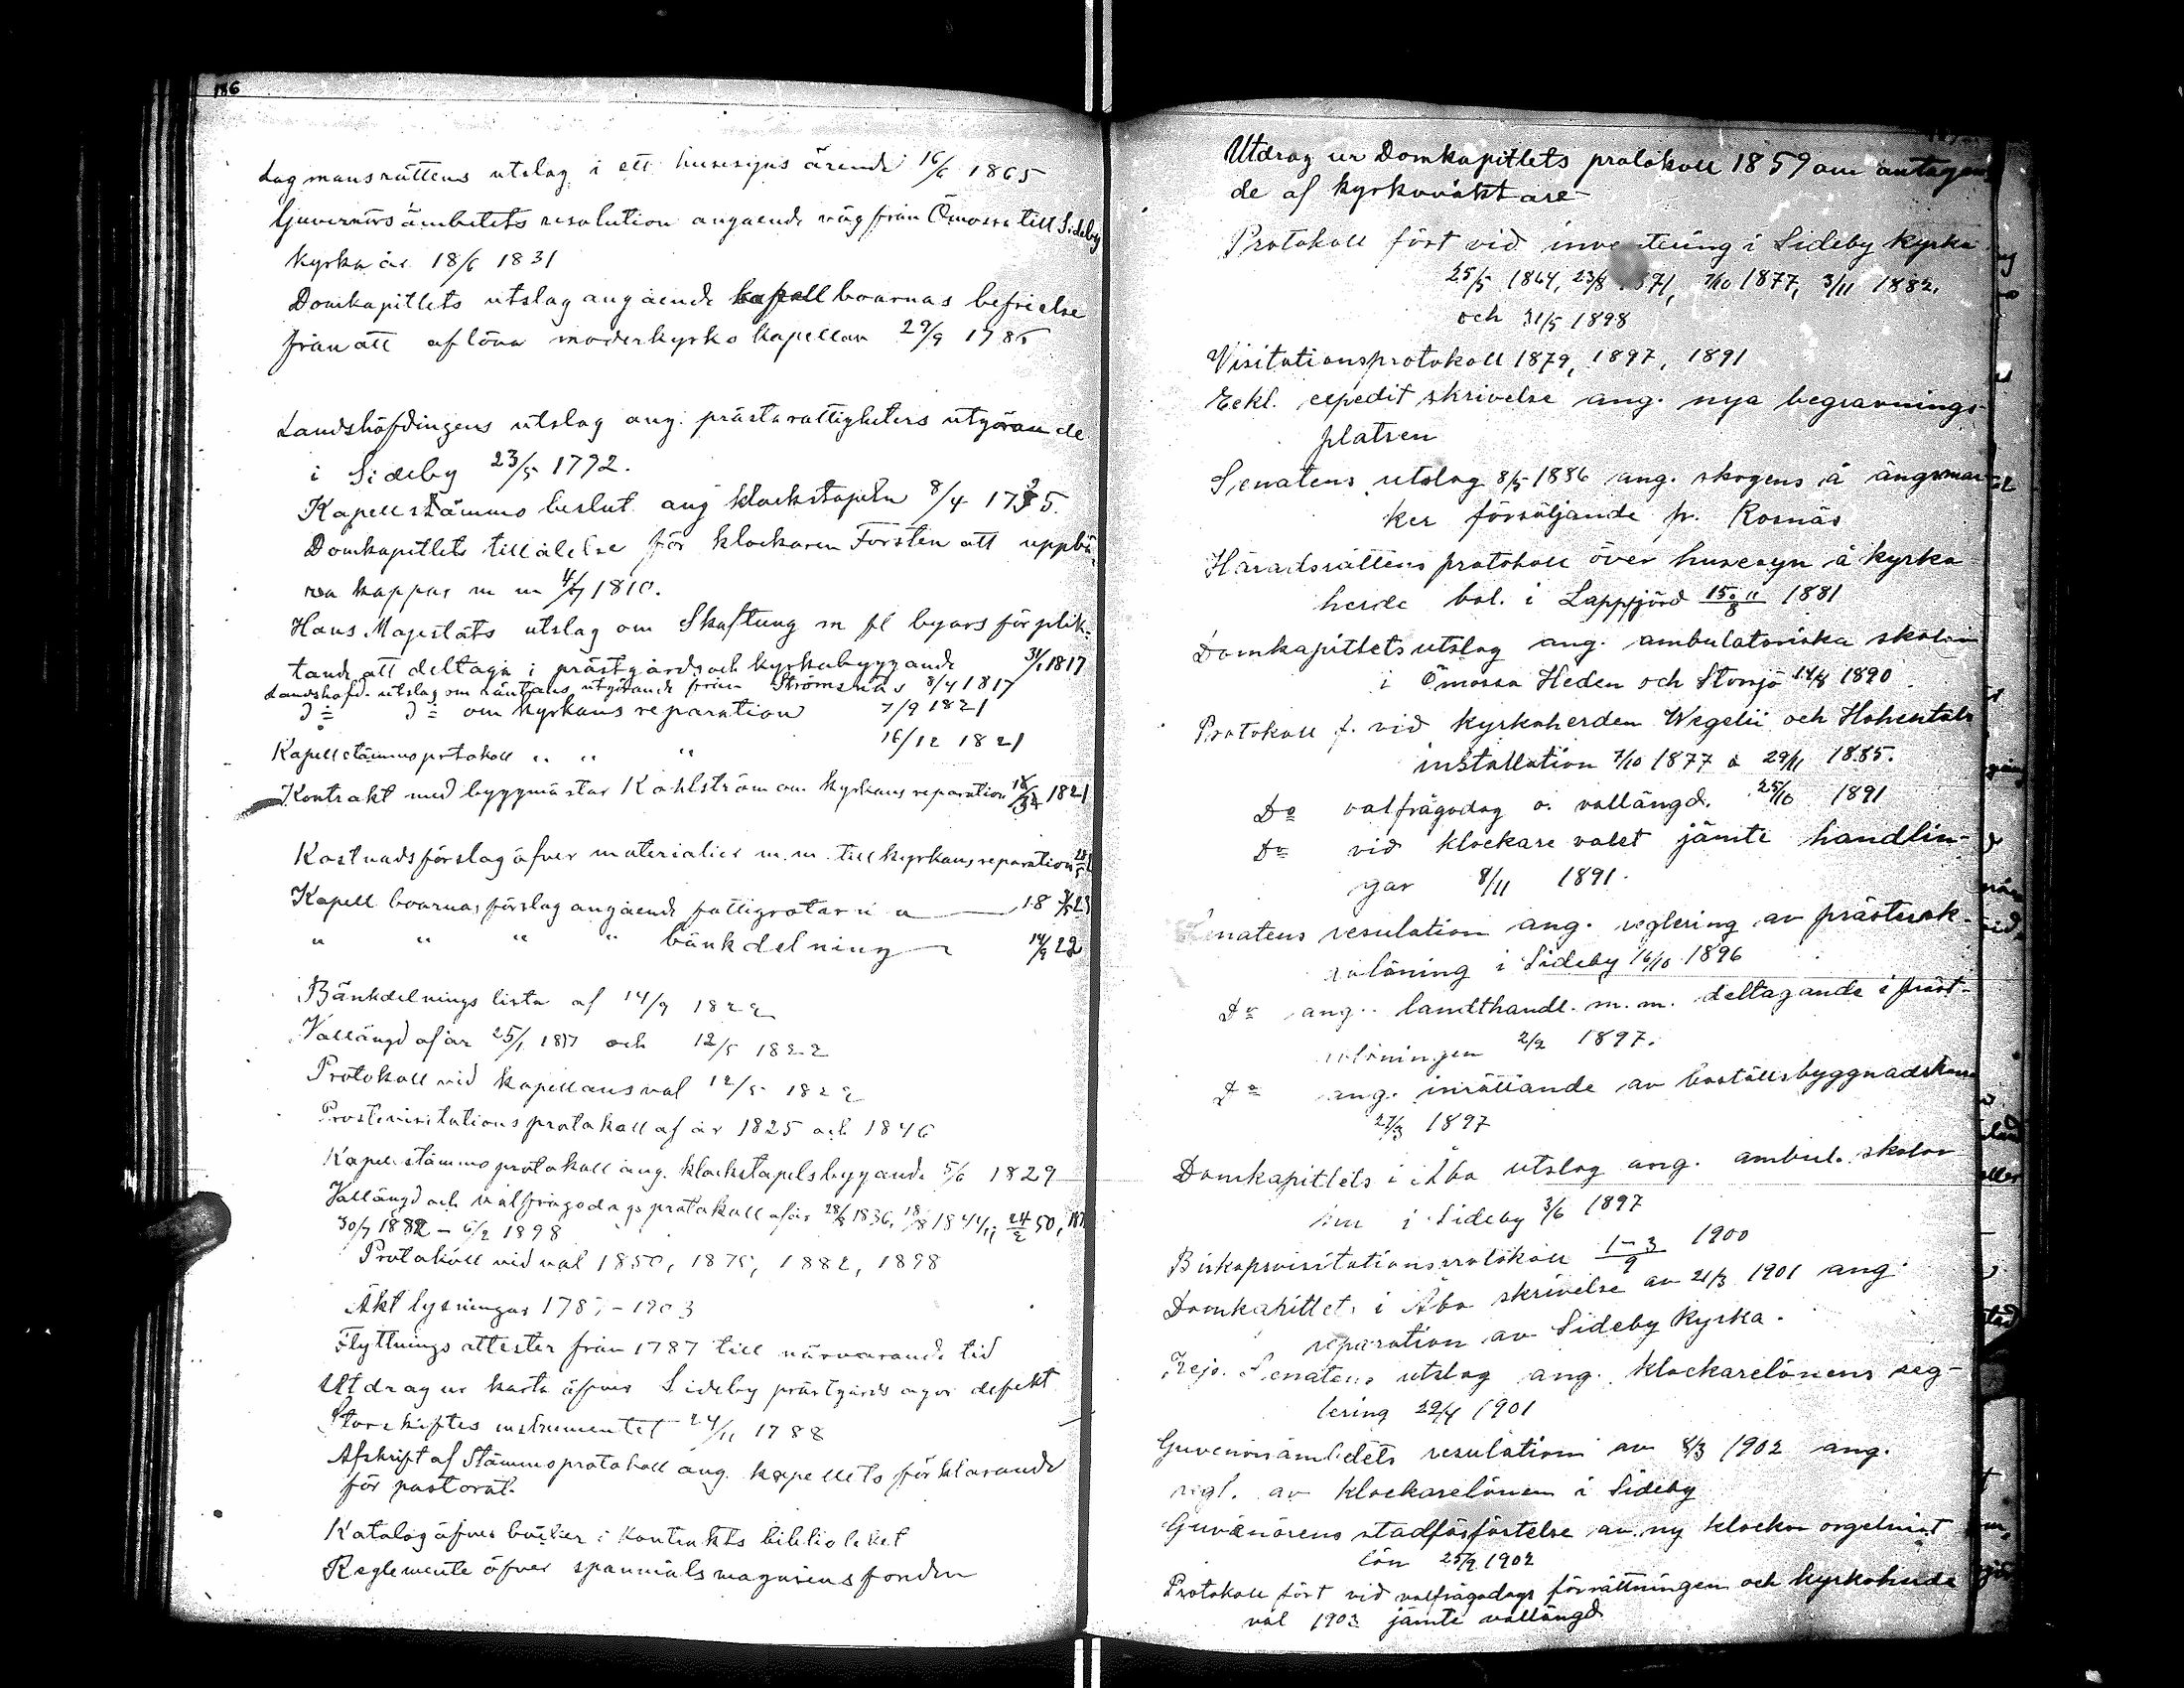 186
Lagmansrättens utslag i ett husesyns ärende 16/6 1865
Guvernörsämbetets resolution angaende väg från Ömossa till Sideby
kyrka år 18/6 1831
Domkapitlets utslag angående kapellboarnas befrielse
från att aflöna moderkyrko kapellan 29/9 1786
Landshöfdingens utslag ang. prästarattigheters utgörande
i Sideby 23/5 1792.
Kapellstämmo beslut ang klockstapeln 8/4
Domkapitlets tillåtelse för klockaren Forsten att uppbä
ra kappar m m 1810.
Hans Majestäts utslag om Skaftung m fl byars förplik-
tande att deltaga i prästgårds och kyrkobyggande 31/1 1817
Landshöfd. utslag om räntans utgörande från Strömsnäs 8/4 1817
D:o D:o om kyrkans reparation 7/9 1821
Kapellstämmoprotokoll " " " 16/12 1821
Kontrakt med byggmästar Kahlström om kyrkans reparation 1821
Kostnadsförslag öfver materialier m.m. till kyrkans reparation
Kapellboarnas förslag angående fattigrotar
" " " " bänkdelning 14/9 22
Bänkdelnings lista af 14/9 1822
Vallängd af år 25/1 1817 och 12/5 1822
Protokoll vid kapellansval 12/5 1822
Prostevisitationsprotokoll af år 1825 och 1846
Kapellstämmoprotokoll ang. klockstapelsbyggande 5/6 1829
Vallängd och valfrågodagsprotokoll af år 28/8 1836, 18/8 1844, 24/2 50,
30/7 1882 – 6/2 1898
Protokoll vid val 1850, 1875, 1882, 1898
Äkt lysningar 1787–1903
Flyttnings attester från 1787 till närvarande tid
Utdrag ur karta öfver Sideby prästgårds egor defekt
Storskiftes instrumentet 24/11 1788
Afskrift af Stämmoprotokoll ang. kapellets förklarande
för pastorat.
Katalog öfver böcker i kontrakts biblioteket
Reglemente öfver spanmåls magasinsfonden
Utdrag ur Domkapitlets protokoll 1859 om antagan
de af kyrkovaktare
Protokoll fört vid inventering i Sideby kyrka
25/5 1864, 23/8 1871, 7/10 1877, 3/11 1882,
och 31/5 1898
Visitationsprotokoll 1879, 1897, 1891
Eckl. expedit skrivelse ang. nya begravnings-
platsen
Senatens utslag 8/5 1886 ang. skogens å ängsmar
ker försäljande fr. Kosnäs
Häradsrättens protokoll över husesyn å kyrko
herde bol. i Lappfjärd 15 o 11/8 1881
Domkapitlets utslag ang. ambulatoriska skolan
i Ömossa Heden och Storsjö 14/8 1890
Protokoll f. vid kyrkoherden Wegelii och Hohentals
installation 7/10 1877 o 29/11 1885.
Do valfrågodag o. vallängd. 25/10 1891
Do vid klockare valet jämte handlin-
gar 8/11 1891.
Senatens resulation ang. reglering av prästersk.
avlöning i Sideby 16/10 1896
Do ang. landthandl. m.m. deltagande i präst-
avlöningen 2/2 1897.
Do ang. inrättande av boställsbyggnadskassa
27/3 1897
Domkapitlets i Åbo utslag ang. ambul. skolor
i Sideby 3/6 1897
Biskopsvisitationsprotokoll 1–3/9 1900
Domkapitlets i Åbo skrivelse av 21/3 1901 ang.
reparation av Sideby kyrka.
Kejs. Senatens utslag ang. klockarelönens reg-
lering 29/4 1901
Guvenörsämbetets resulation av 8/3 1902 ang.
regl. av klockarelönen i Sideby
Guvenörens stadfäsfästelse av ny klockar orgelnist
lön 25/9 1902
Protokoll fört vid valfrågodags förrättningen och kyrkoherde
val 1903 jämte vallängd